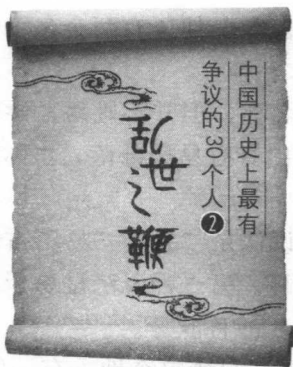 中国历史上最有
争议的30个人❷
乱世之鞭